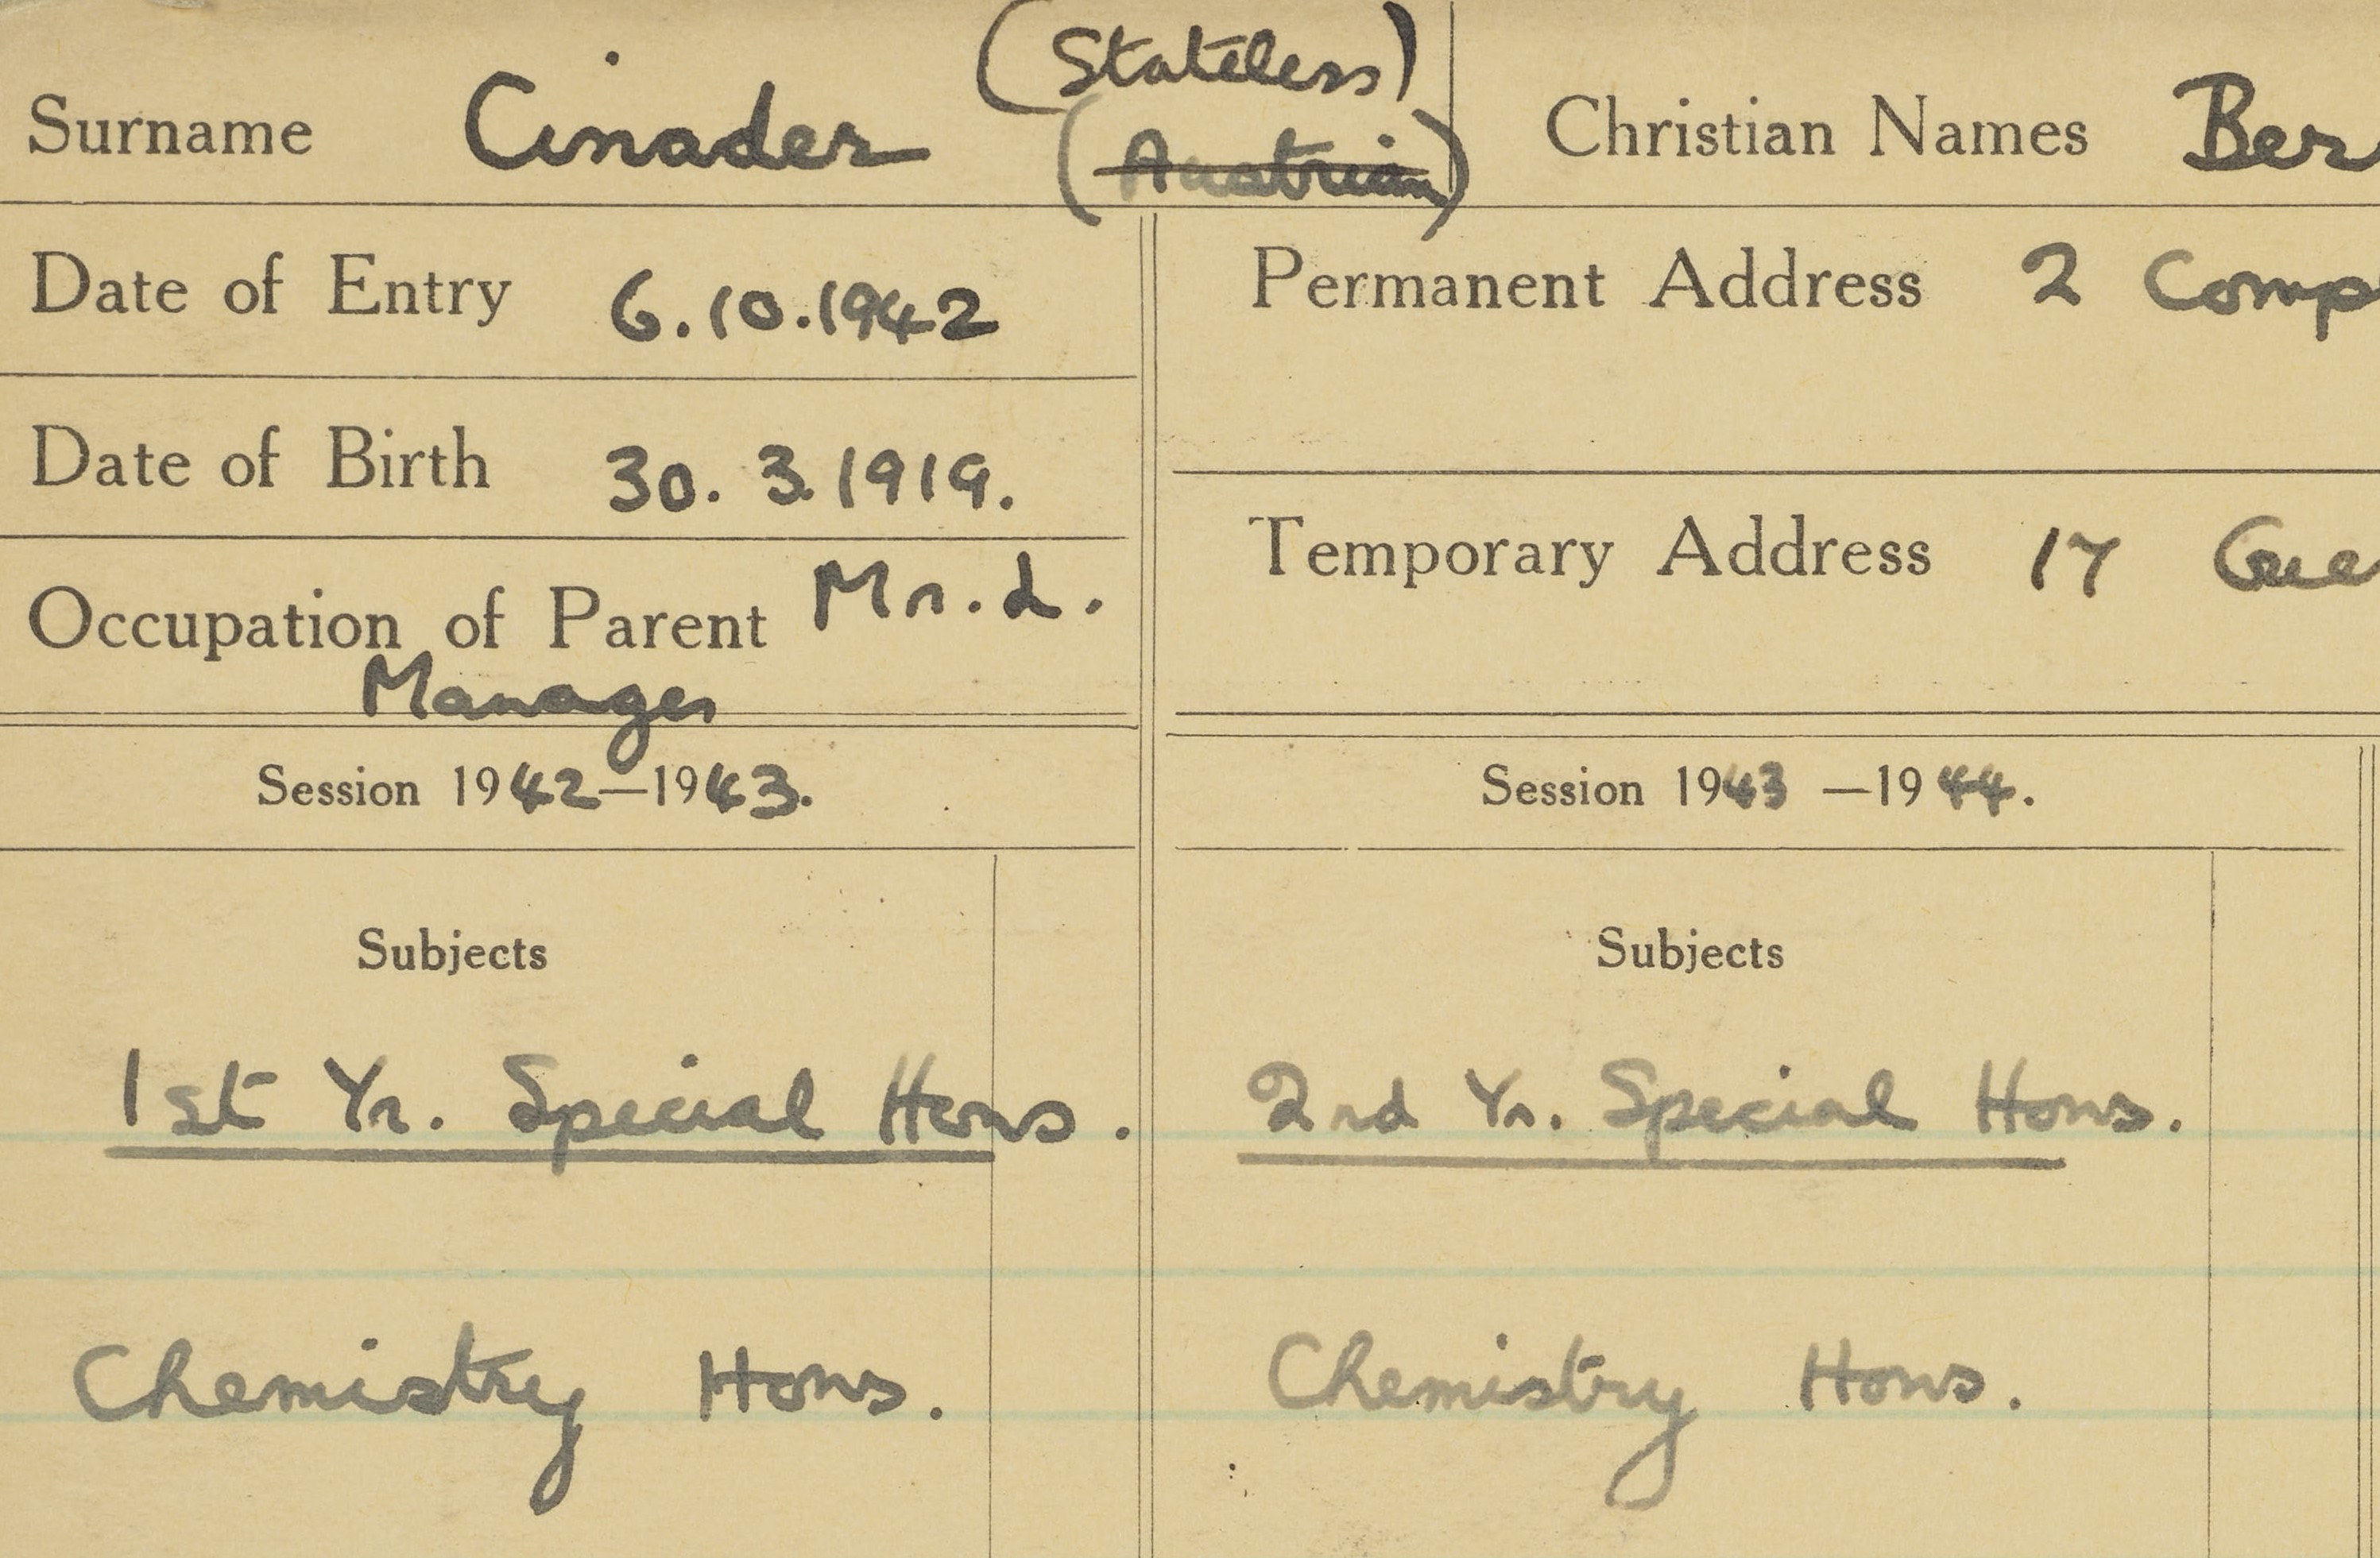 (Stateless)
Surname Cinader (Austrian) Christian Names Ber
Date of Entry 6.10.1942
Permanent Address 2 Comp
Date of Birth 30. 3. 1919.
Temporary Address 17
Occupation of Parent Mr. L.
Manager
Session 1942—1943.
Session 1943 —1944.
Subjects
Subjects
1st Yr. Special Hons.
2nd Yr. Special Hons.
Chemistry Hons.
Chemistry Hons.